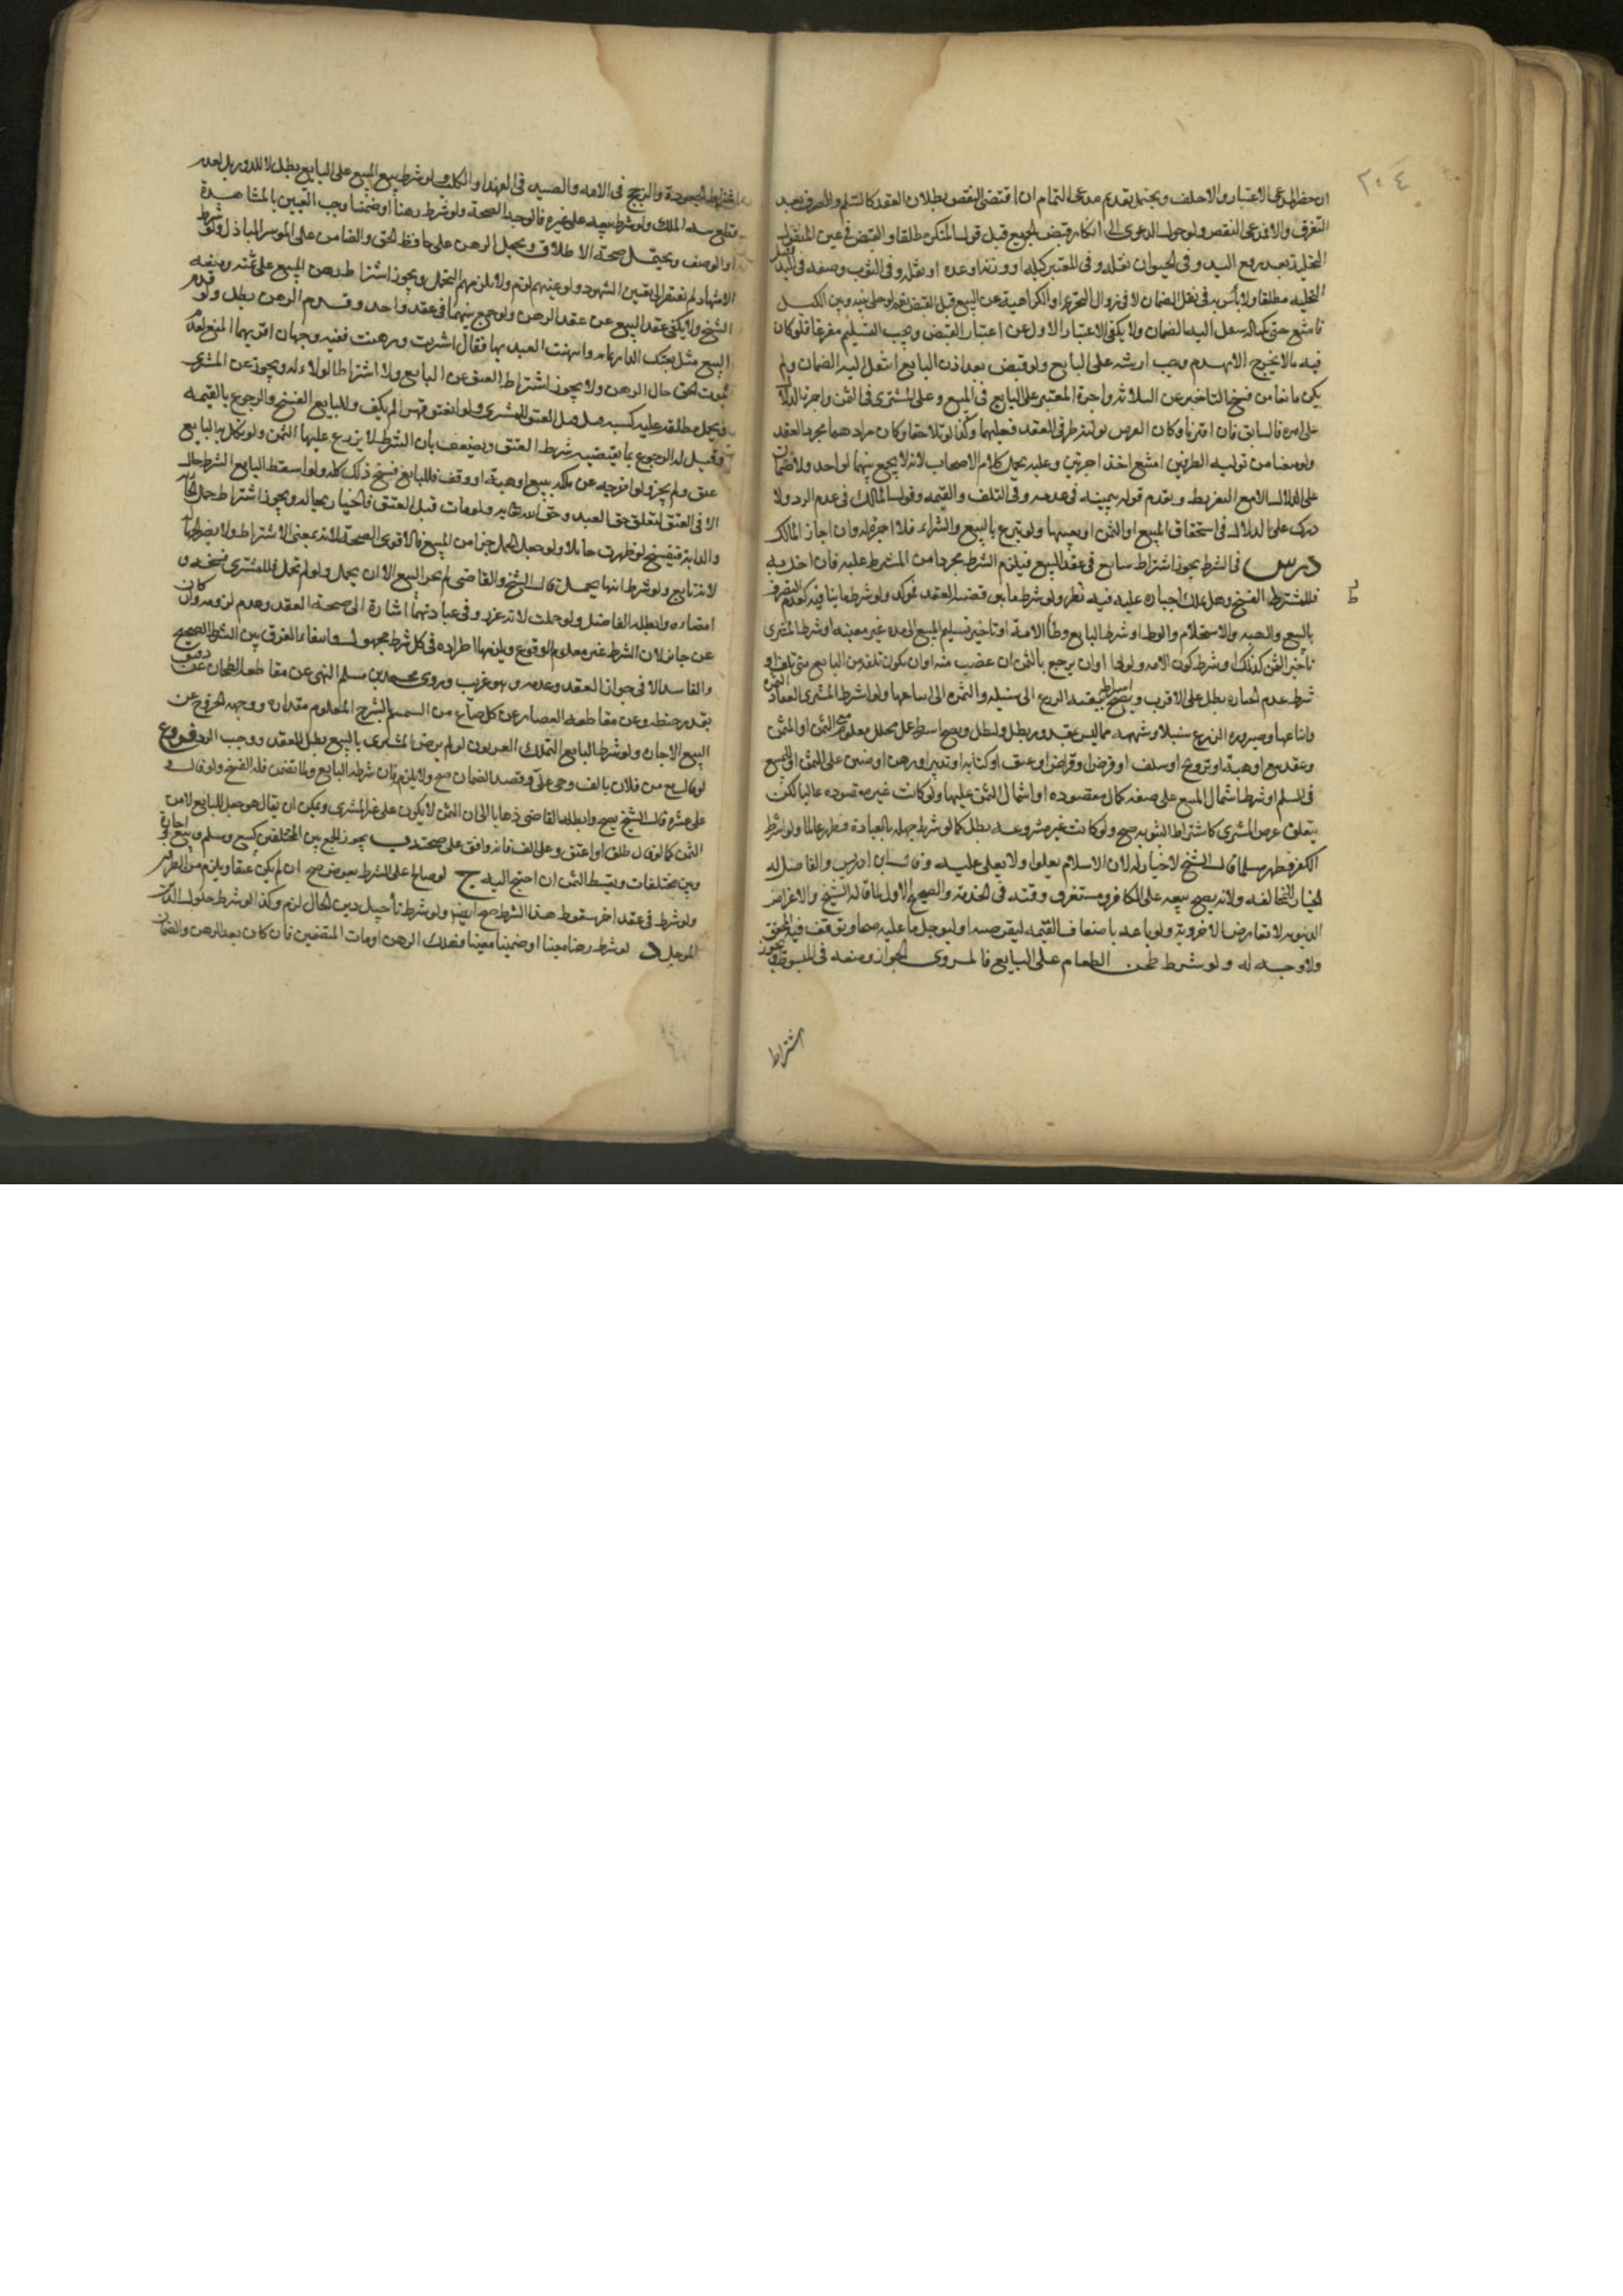 ٢٠٤
ان حضر المدعي الاعتبار والا حلف ويحتمل تقديم مدعي التمام ان اقتضى النقص بطلان العقد كالسلم والصرف بعد
التفرق والا قدم مدعي النقص ولو حول الدعوى الى انكار قبض الجميع قبل قوله المنكر مطلقا والقبض في عين المنقول
التخلية بعد رفع اليد وفي الحيوان نقله وفي المعتبر كيله او وزنه او عده او نقله وفي الثوب وضعه في اليد
التخلية مطلقا ولا بأس به في نقل الضمان لا في زوال التحريم او الكراهية عن البيع قبل القبض نعم لو خلى بينه وبين الكيل
فامتنع حتى يكتاله ينتقل اليه الضمان ولا يكفي الاعتبار الاول عن اعتبار القبض ويجب التسليم مفرغا فلو كان
فيه ما لا يخرج الا بهدم وجب ارشه على البايع ولو قبض بغير اذن البايع انتقل اليه الضمان ولم
يكن مانعا من فسخ التأخير عن الثلاثة واجرة المعتبر على البايع في المبيع وعلى المشتري في الثمن واجرة الدلال
على آمره فالسابق فان اقترنا وكان الغرض تولية طرفي العقد فعليهما وكذا لو تلاحقا وكان مرادهما مجرد العقد
ولو منعنا من تولية الطرفين امتنع اخذ اجرتين وعليه يحمل كلام الاصحاب لانه لا يجمع بينهما لواحد ولا ضمان
على الدلال الا مع التفريط ويقدم قوله بيمينه في عدمه وفي التلف والقيمة وقول المالك في عدم الرد ولا
درك على الدلال في استحقاق المبيع او الثمن او بعيبهما ولو تبرع بالبيع والشراء فلا اجرة له وان اجاز المالك
درس في الشرط يجوز اشتراط سايغ في عقد البيع فيلزم الشرط بمجرده من المشترط عليه فان اخل به
فللمشترط الفسخ وهل يملك اجباره عليه فيه نظر ولو شرط ما هو قضية العقد فمؤكد ولو شرط ما ينافيه كعدم التصرف
بالبيع والهبة والاستخدام والوطء او شرط البايع وطأ الامة او تأخير تسليم المبيع الى مدة غير معينة او شرط المشتري
تأخير الثمن كذلك او شرط كون الامة ام ولد او ان يرجع بالثمن ان غصب منه او ان يكون تلفه من البايع متى تلف او
شرط عدم الخيار بطل على الاقرب ويصح اشتراط تبقية الزرع الى سنبله والثمرة الى ايناعها ولو اشترط المشتري انعقاد الثمرة
وايناعها وصيرورة الزرع سنبلا وشبهه مما ليس بمقدور بطل وابطل ويصح اشتراط عمل محلل معلوم في الثمن او المثمن
وعقد بيع او هبة او تزويج او سلف او قرض او قراض او عتق او كتابة او تدبير او رهن او ضمين على الثمن او المبيع
في السلم او شرط اشتمال المبيع على صفة كمال مقصودة او اشتمال الثمن عليها ولو كانت غير مقصودة غالبا لكن
يتعلق غرض المشتري كاشتراط الثيوبة صح ولو كانت غير مشروعة بطل كما لو شرط جهله بالعبادة فظهر عالما ولو شرط
الكفر فظهر مسلما قال الشيخ لا خيار له لان الاسلام يعلو ولا يعلى عليه وقال ابن ادريس والفاضل له
الخيار للمخالفة ولانه يصح بيعه على الكافر ومستغرق وقته في الخدمة والصحيح الاول لما قاله الشيخ والاغراض
الدنيوية لا تعارض الاخروية ولو باعه باضعاف القيمة ليقرضه او ليؤجل ما عليه صحا وتوقف فيه المحقق
ولا وجه له ولو شرط طحن الطعام على البايع فالمروي الجواز ومنعه في المبسوط ويجوز
اشتراط
اشتراط الجودة والذبح في الامة والصيد في الفهد او الكلب ولو شرط بيع المبيع على البايع بطل لا للدور بل لعدم
قطع سلسلة الملك ولو شرط بيعه على غيره فالوجه الصحة ولو شرط رهنا او ضمينا وجب التعيين بالمشاهدة
او الوصف ويحتمل صحة الاطلاق ويحمل الرهن على حافظ الحق والضامن على الموسر الباذل ولو شرط
الاشهاد لم يفتقر الى تعيين الشهود ولو عينهم لزم ولا يلزمهم التحمل ويجوز اشتراط رهن المبيع على ثمنه ومنعه
الشيخ ولا يكفي عقد البيع عن عقد الرهن ولو جمع بينهما في عقد واحد وقدم الرهن بطل ولو قدم
البيع مثل بعتك الدار بمائة وارتهنت العبد بها فقال اشتريت ورهنت ففيه وجهان اقربهما المنع لعدم
ثبوت الحق حال الرهن ولا يجوز اشتراط العتق عن البايع ولا اشتراط الولاء له ويجوز عن المشتري
ويحمل مطلقه عليه كسبه قبل العتق للمشتري ولو انعتق قهرا لم يكف وللبايع الفسخ والرجوع بالقيمة
وقيل له الرجوع بما يقتضيه شرط العتق ويضعف بأن الشرط لا يتوزع عليها الثمن ولو نكل به البايع
عتق ولم يجز ولو اخرجه عن ملكه ببيع او هبة او وقف فللبايع فسخ ذلك كله ولو اسقط البايع الشرط جاز
الا في العتق لتعلق حق العبد وحق الله تعالى به ولو مات قبل العتق فالخيار بحاله ويجوز اشتراط حمل الامة
والدابة فيفسخ لو ظهرت حائلا ولو جعل الحمل جزءا من المبيع فالاقوى الصحة لانه بمعنى الاشتراط ولا يضر الجهالة
لانه تابع ولو شرط انها تحمل قال الشيخ والقاضي لم يجز البيع الا ان يحمل ولو لم تحمل فللمشتري فسخه و
امضاءه وابطله الفاضل ولو حملت لانه غرر وفي عبارتهما اشارة الى صحة العقد وعدم لزومه وان كان
عن جاز لان الشرط غير معلوم الوقوع ويلزمهما اطراده في كل شرط مجهول وانتفاء الفرق بين الشرط الصحيح
والفاسد الا في جواز العقد وعدمه وهو غريب وروى محمد بن مسلم النهي عن مقاطعة الطحان على دقيق
بقدر حنطة وعن مقاطعة العصار عن كل صاع من السمسم بالشيرج المعلوم مقداره ووجهه الخروج عن
البيع والاجارة ولو شرط البايع التملك العربون لو لم يرض المشتري بالبيع بطل العقد ووجب الرد فروع ا
لو قال بع من فلان بألف وهي علي وقصد الضمان صح ولا يلزم فان شرطه البايع ولما تضمن فله الفسخ ولو قال
علي عشرة قال الشيخ يصح وابطله القاضي ذهابا الى ان الثمن لا يكون على غير المشتري ويمكن ان يقال هو جعل للبايع لا من
الثمن كما لو قال طلق او اعتق وعلي الف فانه وافق على صحته ب يجوز الجمع بين المختلفين كبيع وسلم وبيع واجارة
وبين مختلفات وتقسيط الثمن ان احتيج اليه ج لو صالحا على الشرط بعوض صح ان لم يكن عتقا ويلزم من الطرفين
ولو شرط في عقد اخر سقوط هذا الشرط صح ايضا ولو شرط تأجيل دين الحال لزم وكذا لو شرط حلول الدين
المؤجل د لو شرط رهنا معينا او ضمينا معينا فهلك الرهن او مات الضمين فان كان بعد الرهن والضمان